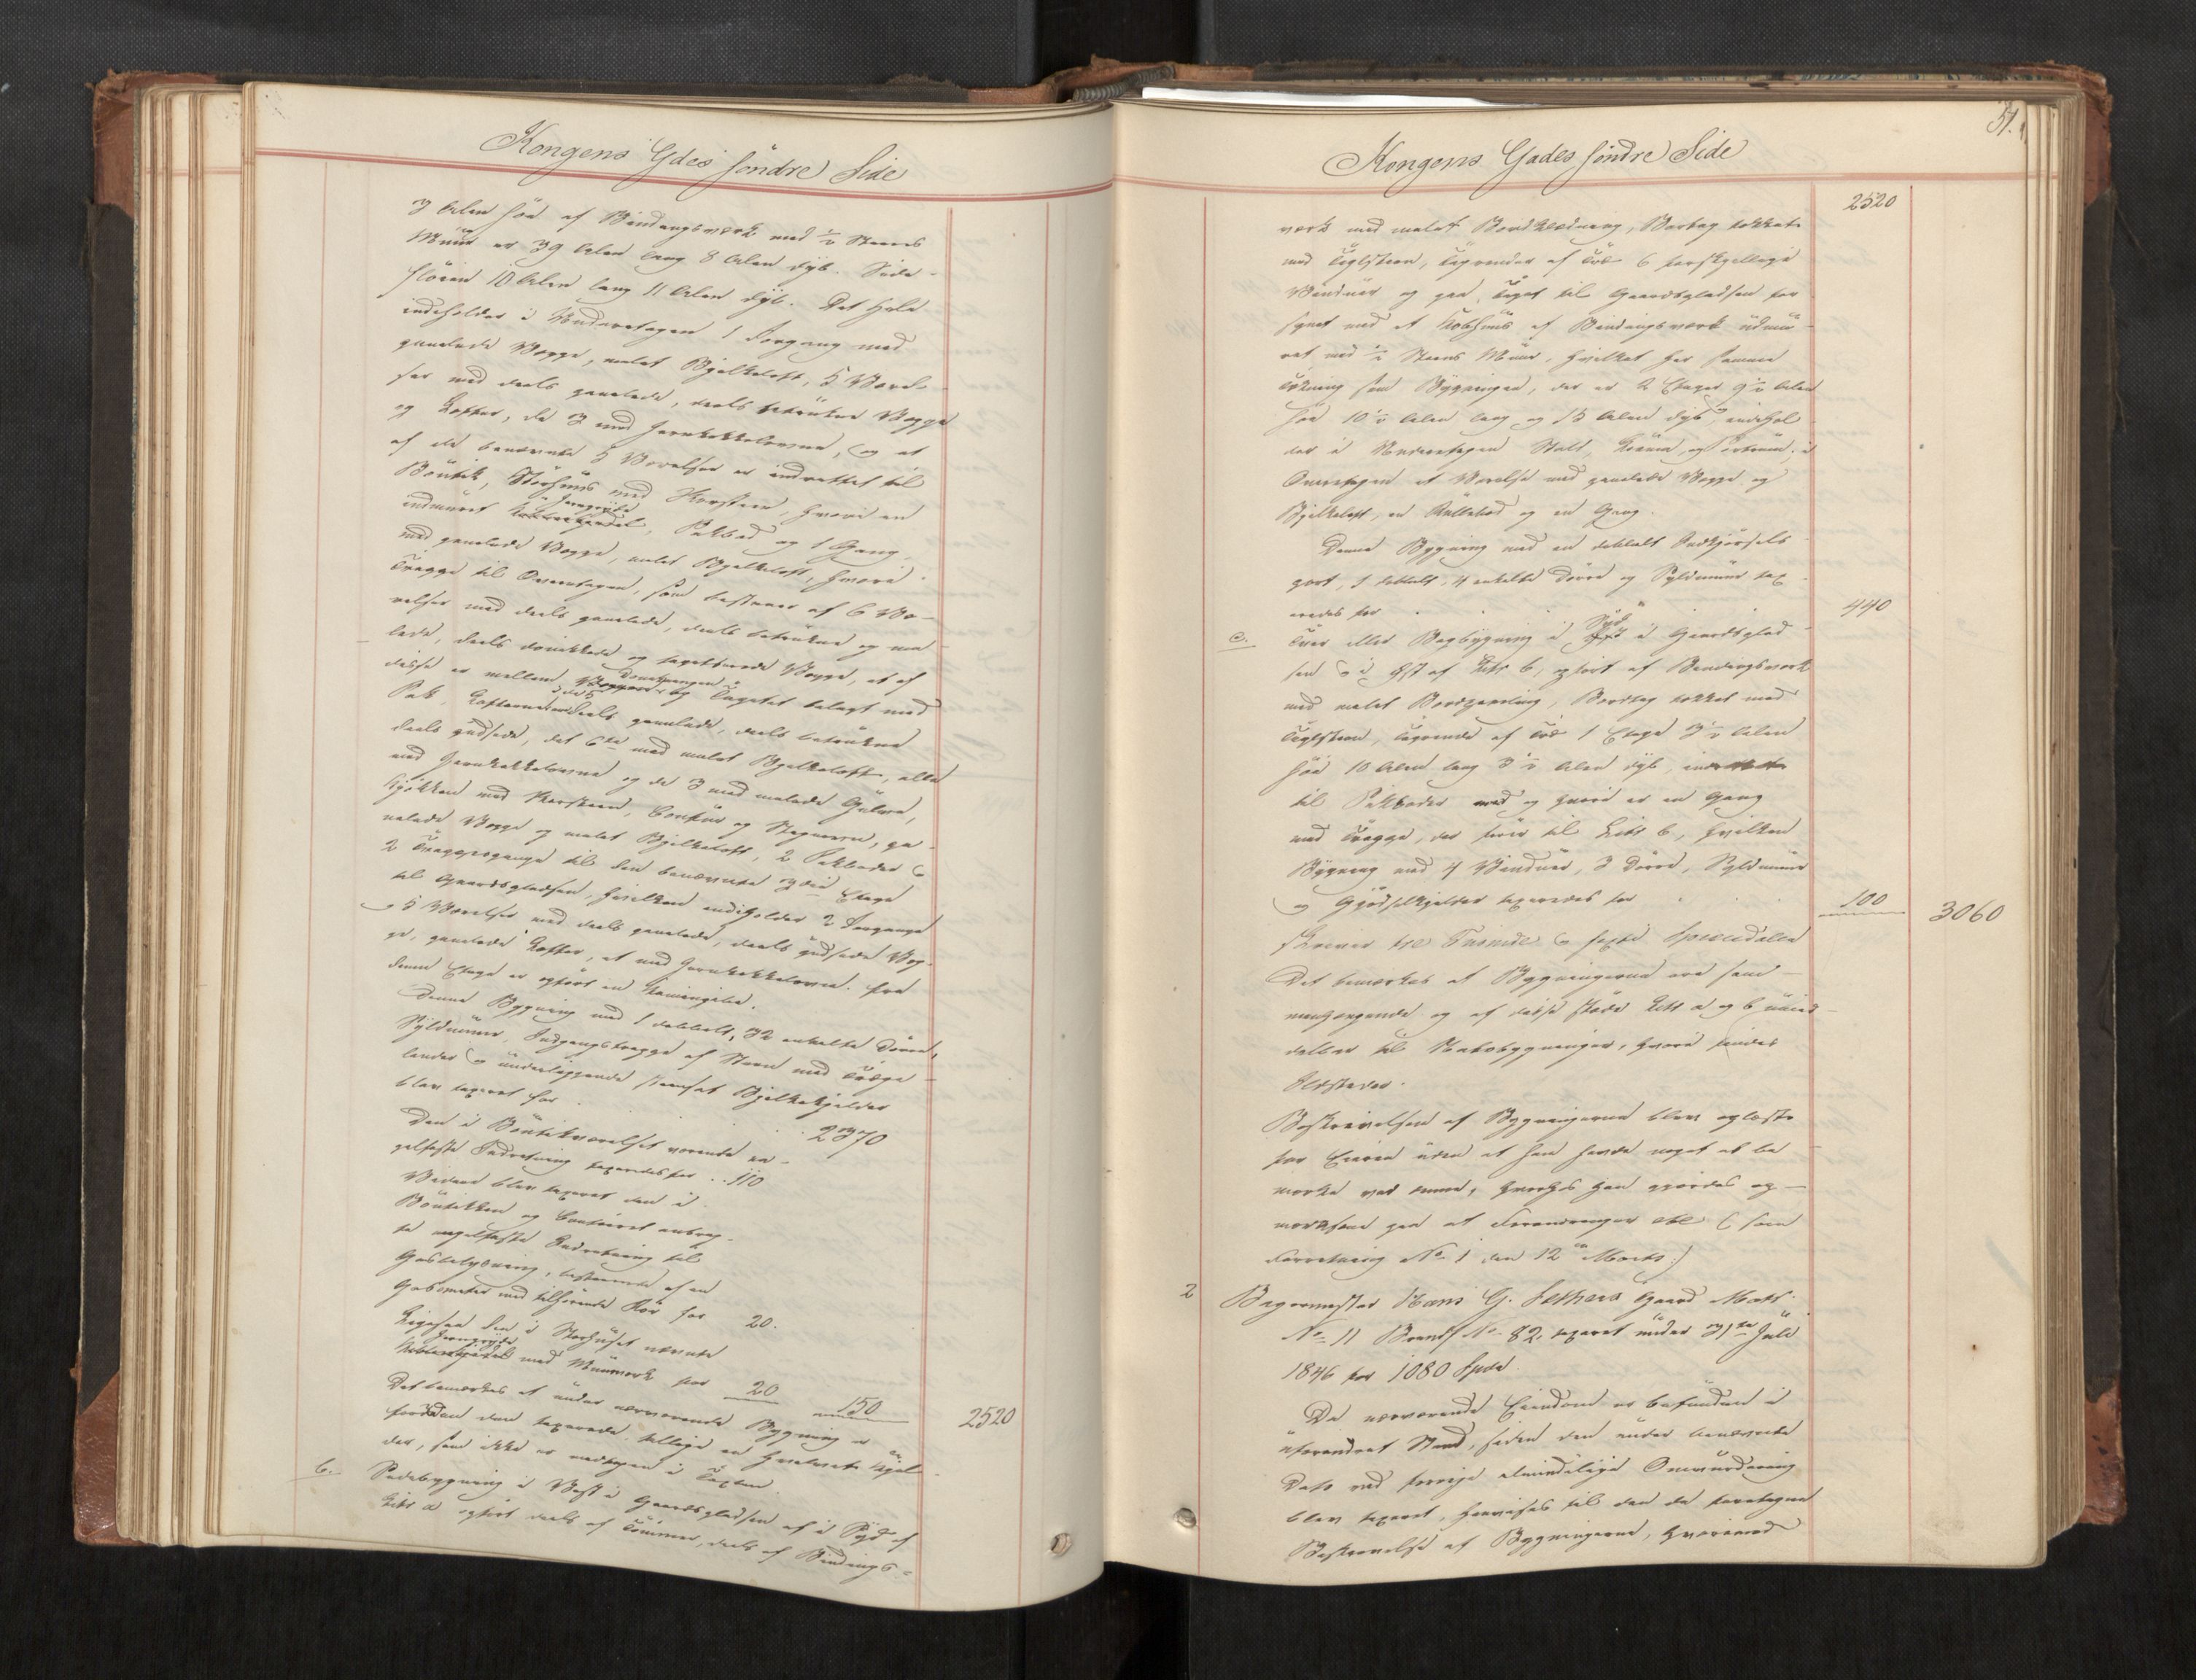 Kongens Gdes söndre Side
3 Alen höi af Bindingsværk med ½ Steens
Muur er 39 Alen lang 8 Alen dyb. Side-
flöien 10 Alen lang 11 Alen dyb. Det Hele
indeholder i Underetagen 1 Forgang med
panelede Vægge, malet Bjelkeloft, 5 Værel-
ser med deels panelede, deels betrukne Vægge
og Lofter, de 3 med Jernkakkelovne, og et
af de benævnte 5 Værelser er indrettet til
Boutik, Störhuus med Skorsteen, hvori en
indmuret Jerngryde, Pakbod og 1 Gang
med panelede Vægge, malet Bjelkeloft, hvori
Trappe til Overetagen, som bestaaer af 6 Væ-
relser med deels panelede, deels betrukne og ma-
lede, deels og Vægge, et af
disse er mellem og Taget belagt med
Pak, Lofterne i de 5 deels panelede, deels betrukne
deels gibsede, det 6te med malet Bjelkeloft, alle
med Jernkakkelovne og de 3 med malede Gulve,
Kjökken med Skorsteen, Comfur og Stegeovn, pa-
nelede Vægge og malet Bjelkeloft, 2 Pakboder &
2 Trappeopgange til den benævnte 3die Etage
til Gaardspladsen, hvilken indeholder 2 Forgange
og 5 Værelser med deels panelede, deels gibsede Væg-
ge, panelede Lofter, et med Jernkakkelovn. Fra
denne Etage er opfört en
Denne Bygning med 1 dobbelt, 32 enkelte Dörre,
Syldmuur, Indgangstrappe af Steen med
lender og underliggende steensat Bjelkekjelder
blev taxeret for . . . . 2370
Den i Boutikværelset værende na-
gelfaste Indretning taxeredes for . . 110
Videre blev taxeret den i
Boutikken og Contoiret anbrag-
te nagelfaste Indretning til
Gasbelysning, bestaaende af en
Gasometer med tilhörende Rör for 20.
Ligesaa den i Störhuset nævnte
Jerngryde med Muurværk for 20 150 2520
Det bemærkes at under nærværende Bygning er
foruden den taxerede tillige en hvælvet Kjel-
der, som ikke er medtagen i Taxten.
b. Sidebygning i Vest i Gaardspladsen af i Syd af
Litr a opfört deels af Tömmer, deels af Bindings-
51.
Kongens Gades söndre Side
2520
værk med malet Bordklædning, Bortag tækket
med Teglsteen, Tagrender af Træ 6 forskjellige
Vinduer og paa Taget til Gaardspladsen for-
synet med et af Bindingsværk udmu-
ret med ½ Steens Muur, hvilket har samme
Tækning som Bygningen, der er 2 Etager 9½ Alen
höi 10½ Alen lang og 13 Alen dyb, indehol-
der i Underetagen Stald, og i
Overetagen et Værelse med panelede Vægge og
Bjelkeloft, en Rullebod og en Gang.
Denne Bygning med en dobbelt Indkjörsels-
port, 1 dobbelt, 4 enkelte Dörre og Syldmuur tax-
eredes for . . . 440
c. Tver eller Bagbygning i Syd i Gaardsplad-
sen & i Öst af Litr b, opfört af Bindingsværk
med malet Bordpanling, Bordtag tækket med
Teglsteen, Tagrende af Træ 1 Etage 3½ Alen
höi 10 Alen lang 3½ Alen dyb, indrettet
til Pakboder og hvori er en Gang
med Trappe, der förer til Litr b, hvilken
Bygning med 4 Vinduer, 3 Dörre, Syldmuur
og Gjödselkjelder taxeredes for . . . 100 3060
skriver tre Tusinde & sexti Speciedaler
Det bemærkes at Bygningerne ere sam-
menhængende og af disse staae Litr a og b umid-
delbar til Nabobygninger, hvori findes
Ildsteder.
Beskrivelsen af Bygningerne blev oplæst
for Eieren uden at han havde noget at be-
mærke ved samme, hvorhos han gjordes op-
mærksom paa at Forandringer etc (som
Forretning No 1 den 12te Marts.)
2 Bagermester Hans G. Sethers Gaard Matr.
No 11 Brandf No 82. taxeret under 31te Juli
1846 for 1080 Spd.
Da nærværende Eiendom er befunden i
uforandret Stand, siden den under benævnte
Dato ved forrige almindelige Omvurdering
blev taxeret, henvises til den da foretagne
Beskrivelse af Bygningerne, hvorimod